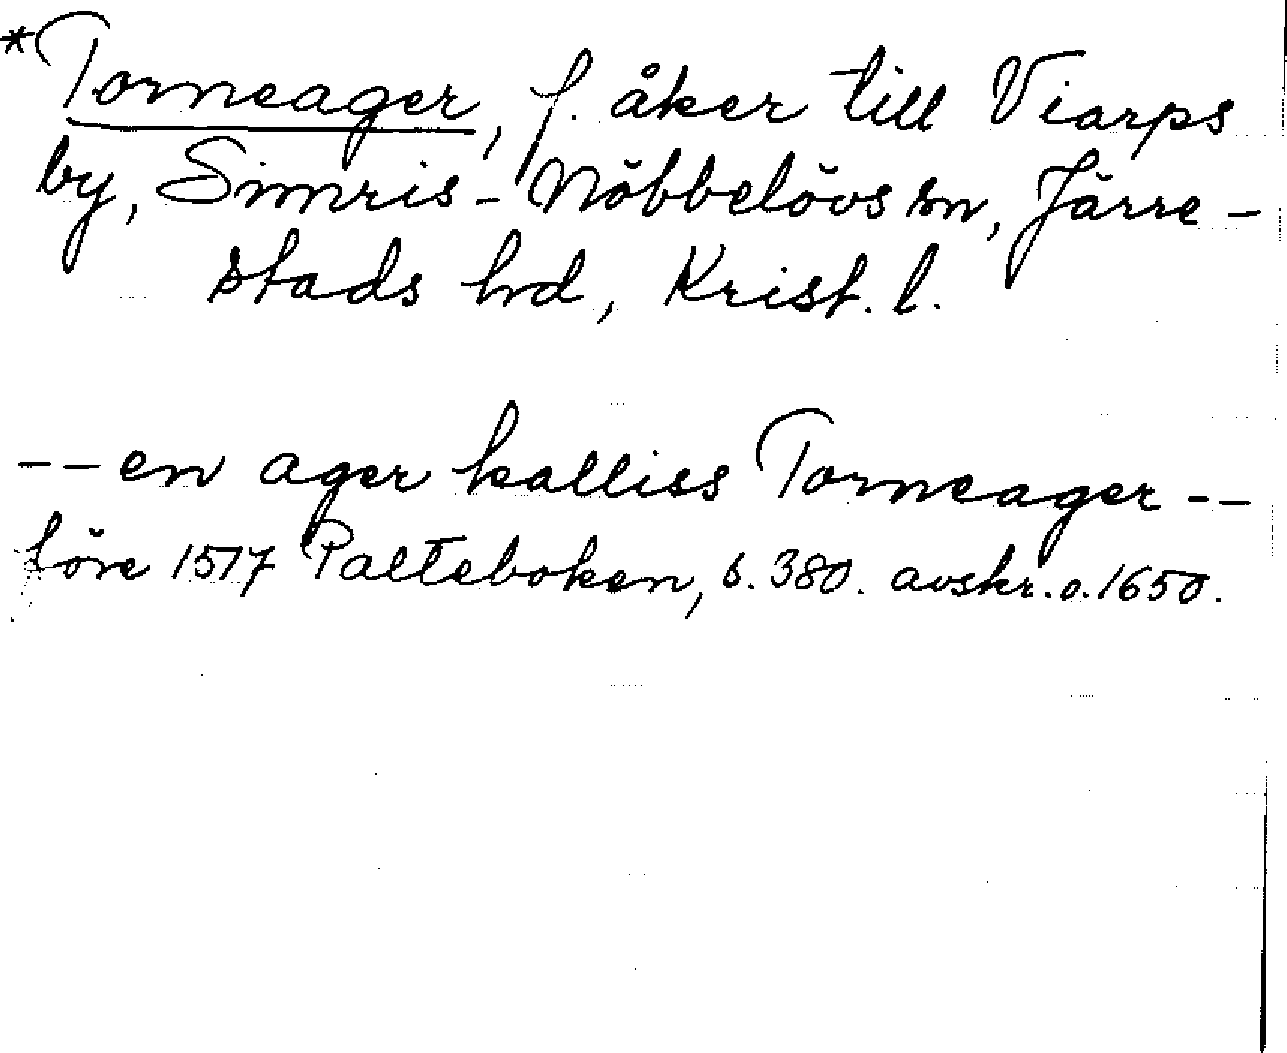 *Torneager, f. åker till Viarps
by, Simris-Nöbbelövs sn, Järre-
stads hd, Krist. l.
-- en ager kalliss Torneager --
före 1517 Palteboken, s. 380. avskr. o. 1650.